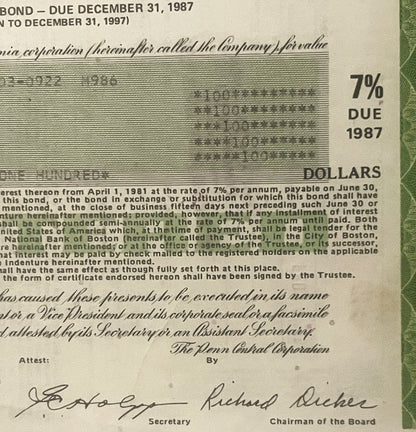 BOND – DUE DECEMBER 31, 1987
N TO DECEMBER 31, 1997)
nia corporation (hereinafter called the Company), for value
03-0922 M986
*100********
**100*******
***100******
****100*****
*****100****
7%
DUE
1987
ONE HUNDRED*
DOLLARS
erest thereon from April 1, 1981 at the rate of 7% per annum, payable on June 30,
this bond, or the bond in exchange or substitution for which this bond shall have
mentioned, at the close of business fifteen days next preceding such June 30 or
nture hereinafter mentioned; provided, however, that if any installment of interest
shall be compounded semi-annually at the rate of 7% per annum until paid. Both
nited States of America which, at the time of payment, shall be legal tender for the
National Bank of Boston (hereinafter called the Trustee), in the City of Boston,
re hereinafter mentioned; or at the office or agency of the Trustee, or its successor,
hat interest may be paid by check mailed to the registered holders on the applicable
Indenture hereinafter mentioned.
hall have the same effect as though fully set forth at this place.
the form of certificate endorsed hereon shall have been signed by the Trustee.
has caused these presents to be executed in its name
nt or a Vice President and its corporate seal or a facsimile
d attested by its Secretary or an Assistant Secretary.
The Penn Central Corporation
Attest: By
Richard Dicker
Secretary Chairman of the Board